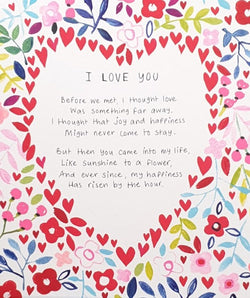 I LOVE YOU
Before we met, I thought love
Was something far away,
I thought that joy and happiness
Might never come to stay.
But then you came into my life,
Like Sunshine to a flower,
And ever since, my happiness
Has risen by the hour.